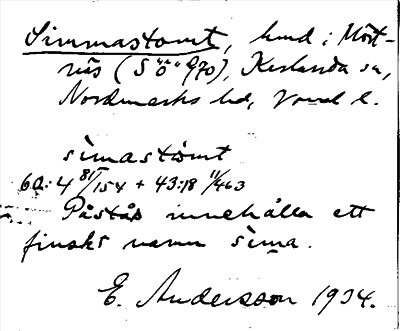 Simmastomt, hmd i Mört-
näs (SÖ "Ö" 970), Karlanda sn,
Nordmarks hd, Vrml l.
sìmastòmt
60:4 81/154 + 43:18 11/463
Påstås innehålla ett
finskt namn sima.
E. Andersson 1934.